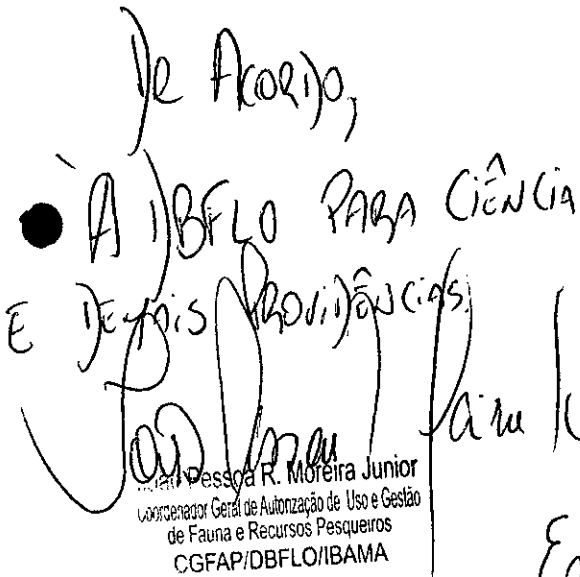 De Acordo,
À DBFLO PARA CIÊNCIA
E DEMAIS PROVIDÊNCIAS.
Pessoa R. Moreira Junior
Coordenador Geral de Autorização de Uso e Gestão
de Fauna e Recursos Pesqueiros
CGFAP/DBFLO/IBAMA